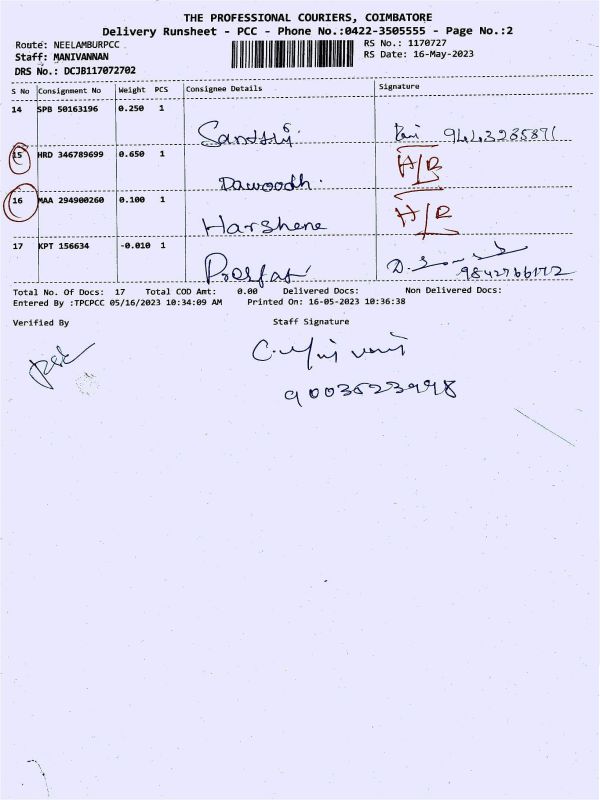 THE PROFESSIONAL COURIERS, COIMBATORE
Delivery Runsheet - PCC - Phone No.:0422-3505555 - Page No.:2
Route: NEELAMBURPCC RS No.: 1170727
Staff: MANIVANNAN RS Date: 16-May-2023
DRS No.: DCJB117072702
S No Consignment No Weight PCS Consignee Details Signature
14 SPB 50163196 0.250 1
15 HRD 346789699 0.650 1 H/R
Dawoodh.
16 MAA 294900260 0.100 1 H/R
Harshene
17 KPT 156634 -0.010 1
9842766172
Total No. Of Docs: 17 Total COD Amt: 0.00 Delivered Docs: Non Delivered Docs:
Entered By :TPCPCC 05/16/2023 10:34:09 AM Printed On: 16-05-2023 10:36:38
Verified By Staff Signature